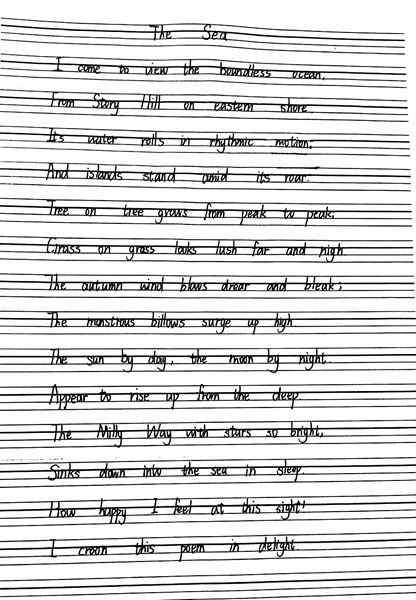 The Sea
I come to view the boundless ocean,
From Stony Hill on eastern shore.
Its water rolls in rhythmic motion;
And islands stand amid its roar.
Tree on tree grows from peak to peak;
Grass on grass looks lush far and nigh.
The autumn wind blows drear and bleak;
The monstrous billows surge up high.
The sun by day, the moon by night.
Appear to rise up from the deep.
The Milky Way with stars so bright,
Sinks down into the sea in sleep.
How happy I feel at this sight!
I croon this poem in delight.